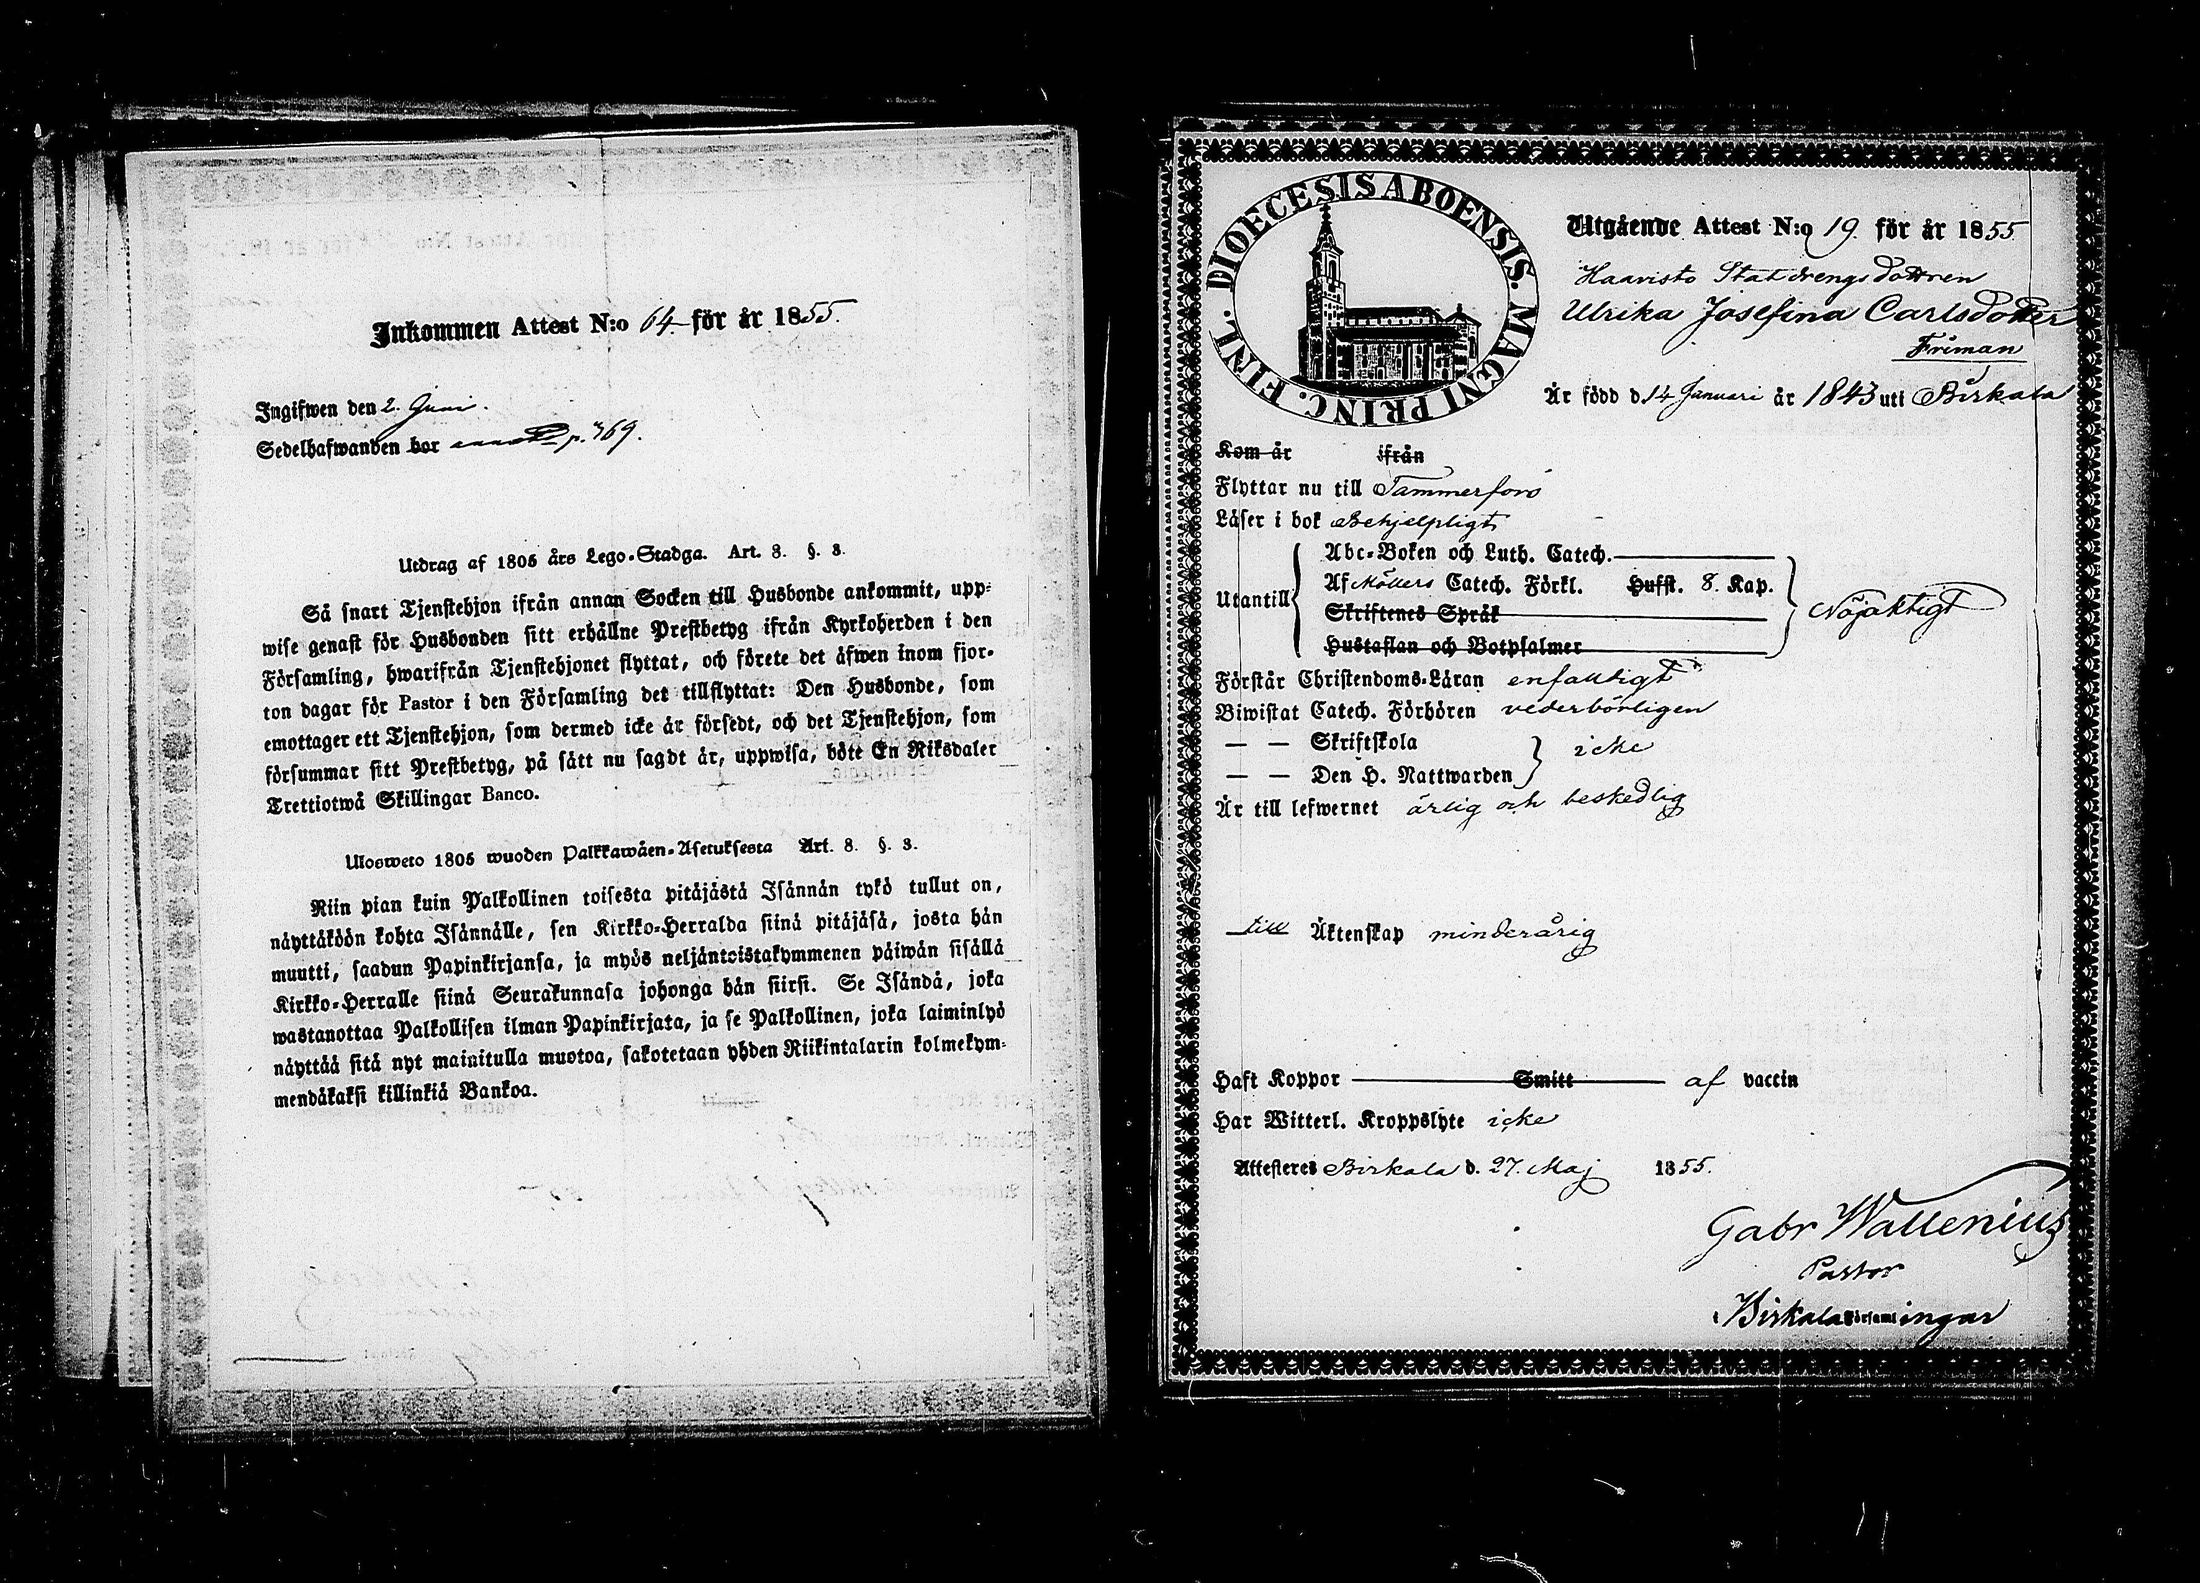 Inkommen Attest N:o 64 för år 1855.
Ingifwen den 2. Juni.
Sedelhafwanden bor p. 369.
Utdrag af 1805 års Lego-Stadga. Art. 8. §. 3.
Så snart Tjenstehjon ifrån annan Socken till Husbonde ankommit, upp-
wise genast för Husbonden sitt erhållne Prestbetyg ifrån Kyrkoherden i den
Församling, hwarifrån Tjenstehjonet flyttat, och förete det äfwen inom fjor-
ton dagar för Pastor i den Församling det tillflyttat: Den Husbonde, som
emottager ett Tjenstehjon, som dermed icke är försedt, och det Tjenstehjon, som
försummar sitt Prestbetyg, på sätt nu sagdt är, uppwisa, böte En Riksdaler
Trettiotwå Skillingar Banco.
Ulosweto 1805 wuoden Palkkawäen-Asetuksesta Art. 8. §. 3.
Niin pian kuin Palkollinen toisesta pitäjästä Isännän tykö tullut on,
näyttäköön kohta Isännälle, sen Kirkko-Herralda siinä pitäjäsä, josta hän
muutti, saadun Papinkirjansa, ja myös neljäntoistakymmenen päiwän sisällä
Kirkko-Herralle siinä Seurakunnasa johonga hän siirsi. Se Isändä, joka
wastanottaa Palkollisen ilman Papinkirjata, ja se Palkollinen, joka laiminlyö
näyttää sitä nyt mainitulla muotoa, sakotetaan yhden Riikintalarin kolmekym-
mendäkaksi killinkiä Bankoa.
DIOECESIS ABOENSIS. MAGNI PRINC. FINL.
Utgående Attest N:o 19. för år 1855
Haavisto Statdrengsdottren
Ulrika Josefina Carlsdotter
Friman
Är född d. 14 Januari år 1843 uti Birkala
Kom år ifrån
Flyttar nu till Tammerfors
Läser i bok Behjelpligt
Abc-Boken och Luth. Catech.
Utantill Af Möllers Catech. Förkl. Hufst. 8. Kap. Nöjaktigt
Skriftenes Språk
Hustaflan och Botpsalmer
Förstår Christendoms-Läran enfalldigt
Biwistat Catech. Förhören vederbörligen
— — Skriftskola icke
— — Den H. Nattwarden
Är till lefwernet ärlig och beskedlig
till Äktenskap minderårig
Haft Koppor Smitt af vaccin
Har Witterl. Kroppslyte icke
Attesteres Birkala d. 27. Maj 1855.
Gabr Wallenius
Pastor
i Birkala församlingar